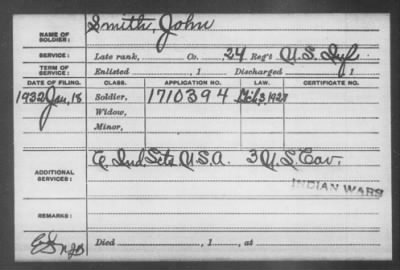 NAME OF SOLDIER: Smith, John
SERVICE: Late rank, Co. , 24 Reg't U.S. Inf.
TERM OF SERVICE: Enlisted , 1 Discharged , 1
DATE OF FILING. CLASS. APPLICATION NO. LAW. CERTIFICATE NO.
1932 Jan, 18 Soldier, 1710394 Mch 3, 1927
Widow,
Minor,
ADDITIONAL SERVICES: Ind. Scts. U.S.A. 3 U.S. Cav.
INDIAN WARS
REMARKS:
Died , 1 , at